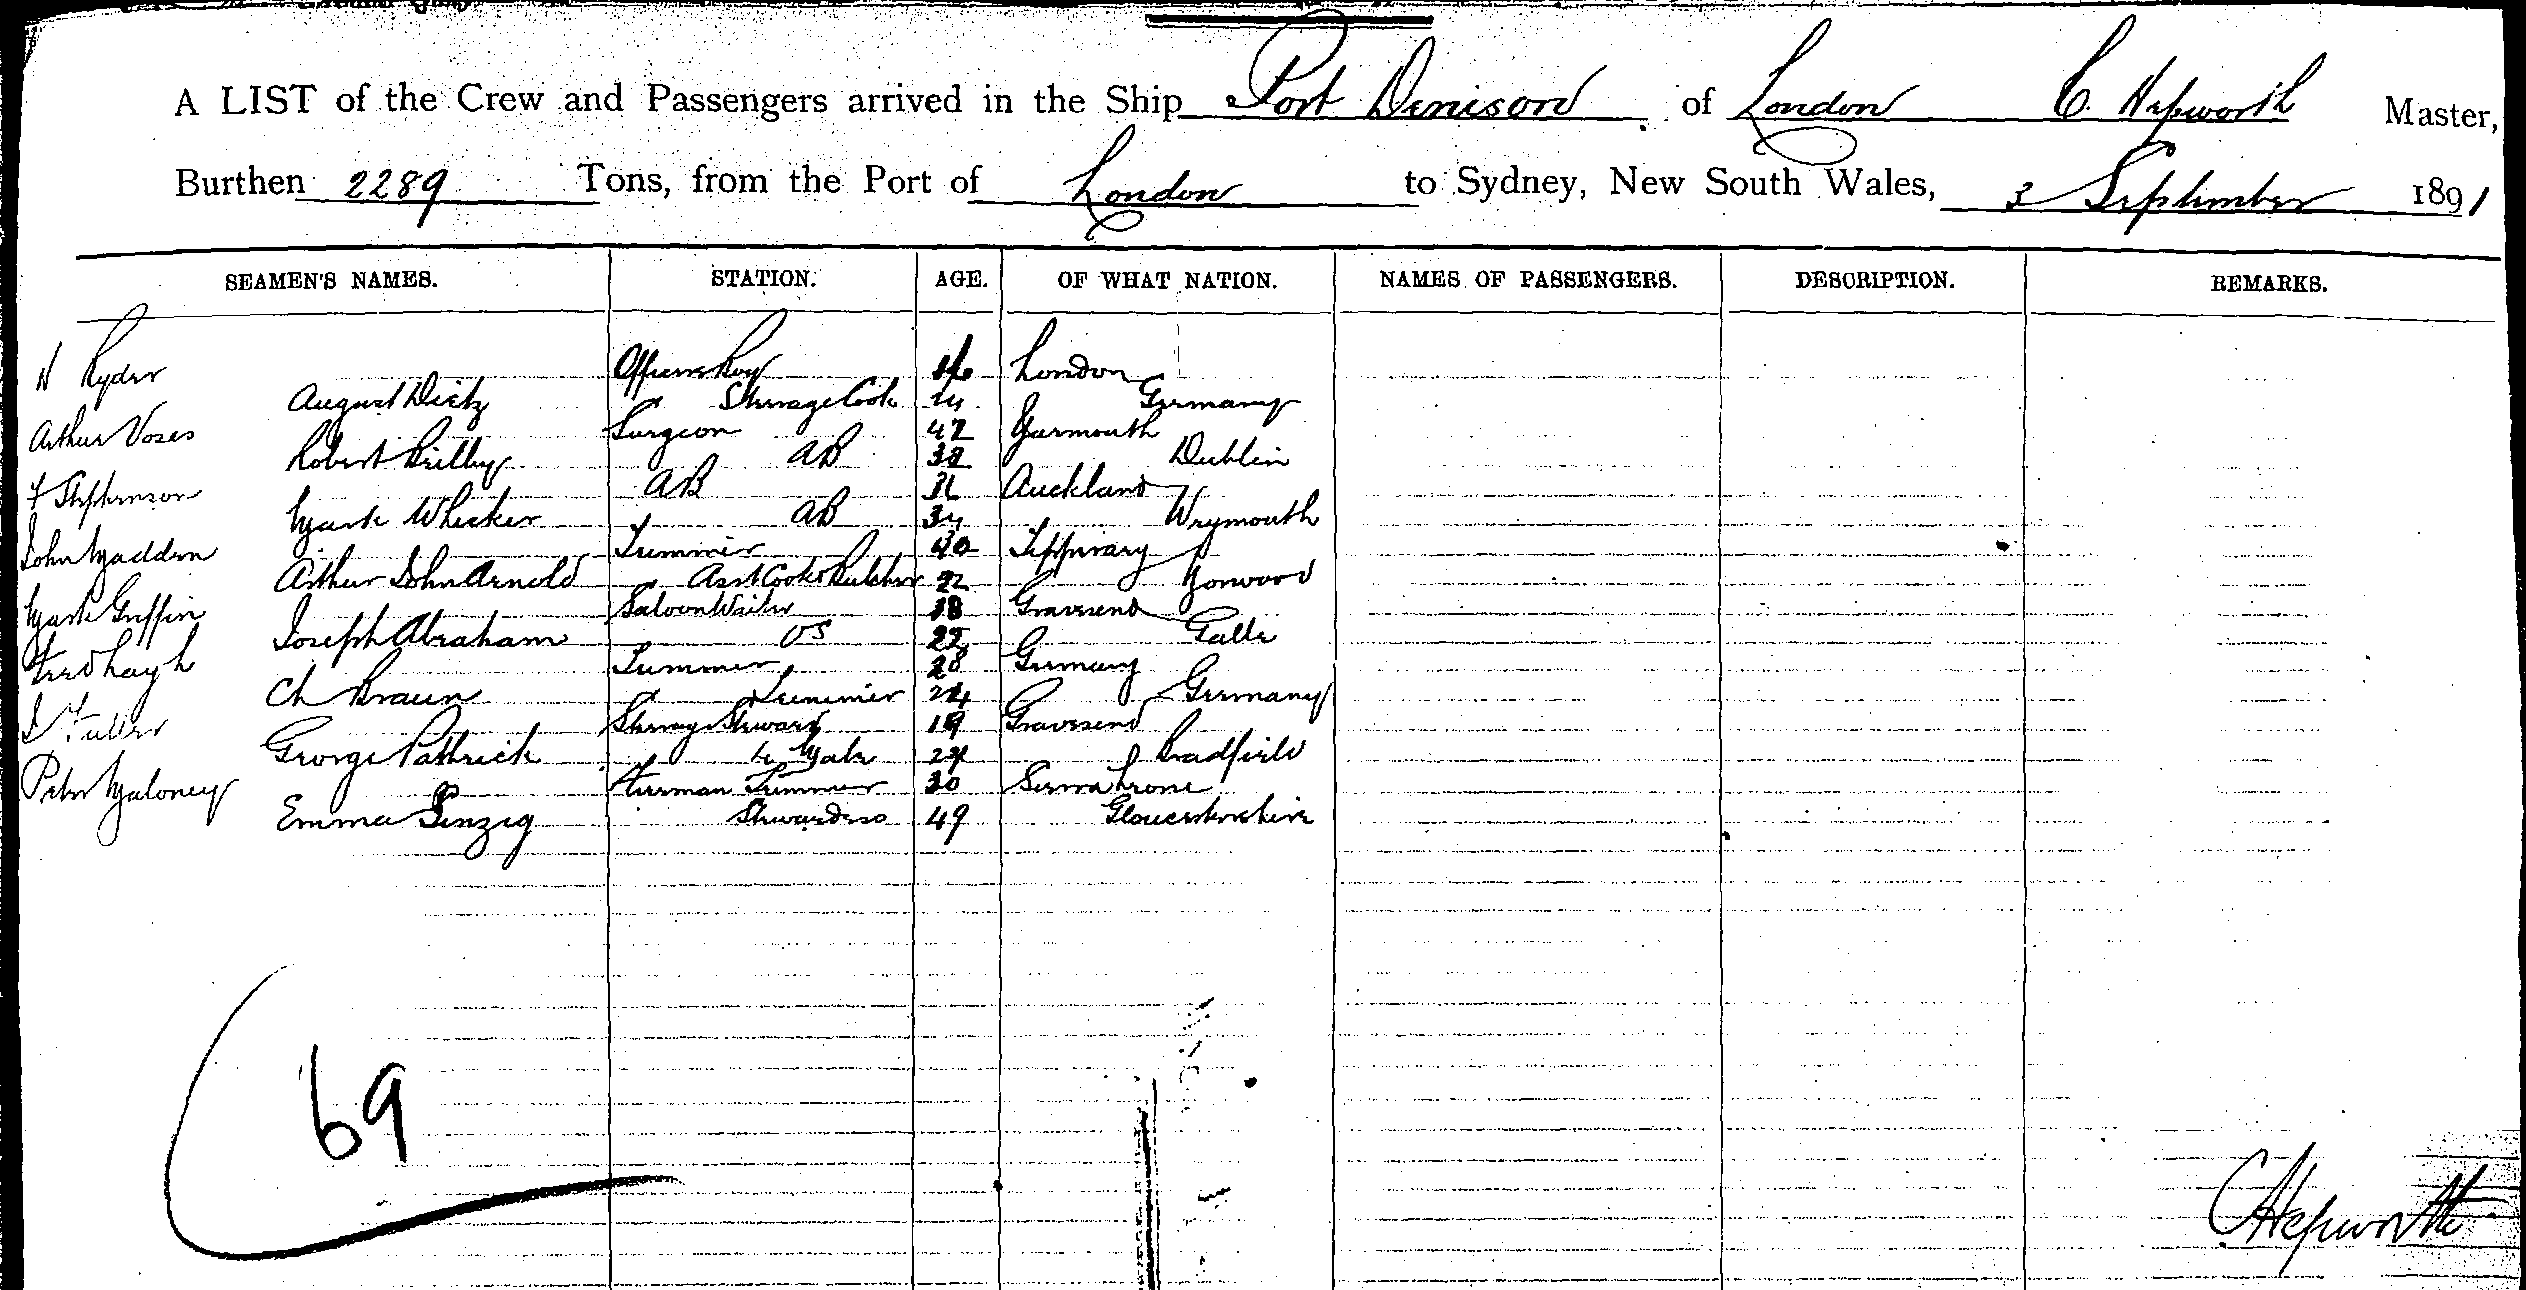 A LIST of the Crew and Passengers arrived in the Ship Port Denison of London C. Hepworth Master,
Burthen 2289 Tons, from the Port of London to Sydney, New South Wales, 3 September 1891
SEAMEN'S NAMES. STATION. AGE. OF WHAT NATION. NAMES OF PASSENGERS. DESCRIPTION. REMARKS.
H Ryder Officers Boy 16 London
August Dietz " Steerage Cook 24 Germany
Arthur Voses Surgeon 42 Yarmouth
Robert Brilly AB 38 Dublin
F Stephenson AB 31 Auckland
Mark Whicker " AB 34 Weymouth
John Madden Trimmer 40 Tipperary
Arthur John Arnold " Asst Cook & Butcher 22 Norwood
Mark Griffin Saloon Waiter 18 Gravesend
Joseph Abraham OS 22 Galle
Fred Laugh Trimmer 28 Germany
Ch Braun " Trimmer 24 Germany
J Fuller Steerage Steward 19 Gravesend
George Pattrick 4 Mate 24 Bradfield
Peter Maloney Fireman Trimmer 30 Sierra Leone
Emma Sinzig Stewardess 49 Gloucestershire
69
C Hepworth